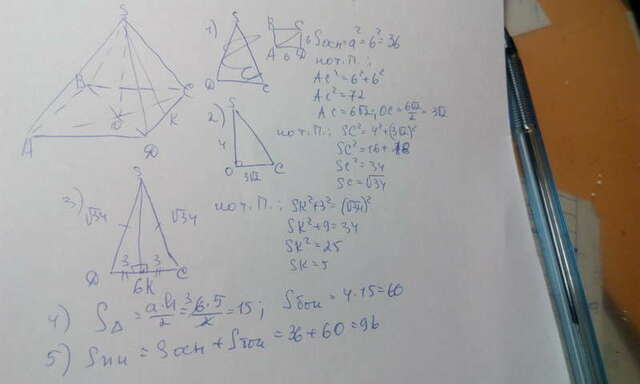 S
B
C
A
D
O
K
1)
S
D
C
B
C
A
D
6
6
Sосн = a² = 6² = 36
по т. П.:
AC² = 6² + 6²
AC² = 72
AC = 6√2; OC = 6√2/2 = 3√2
2)
S
4
O
3√2
C
по т. П.: SC² = 4² + (3√2)²
SC² = 16 + 18
SC² = 34
SC = √34
3)
S
√34
√34
3
3
D
C
6
K
по т. П.: SK² + 3² = (√34)²
SK² + 9 = 34
SK² = 25
SK = 5
4) S△ = a·h/2 = 6·5/2 = 15; Sбок = 4·15 = 60
5) Sпп = Sосн + Sбок = 36 + 60 = 96